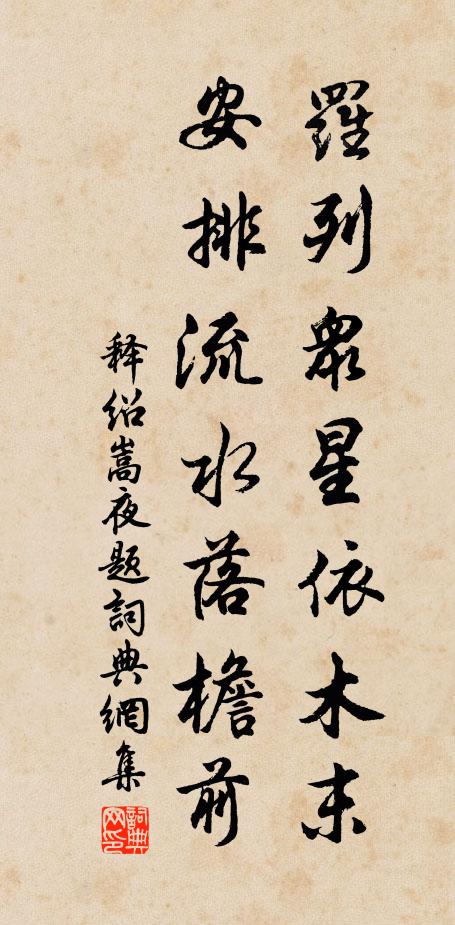 羅列衆星依木末
安排流水落檐前
释绍嵩夜题詞典網集
詞典网印